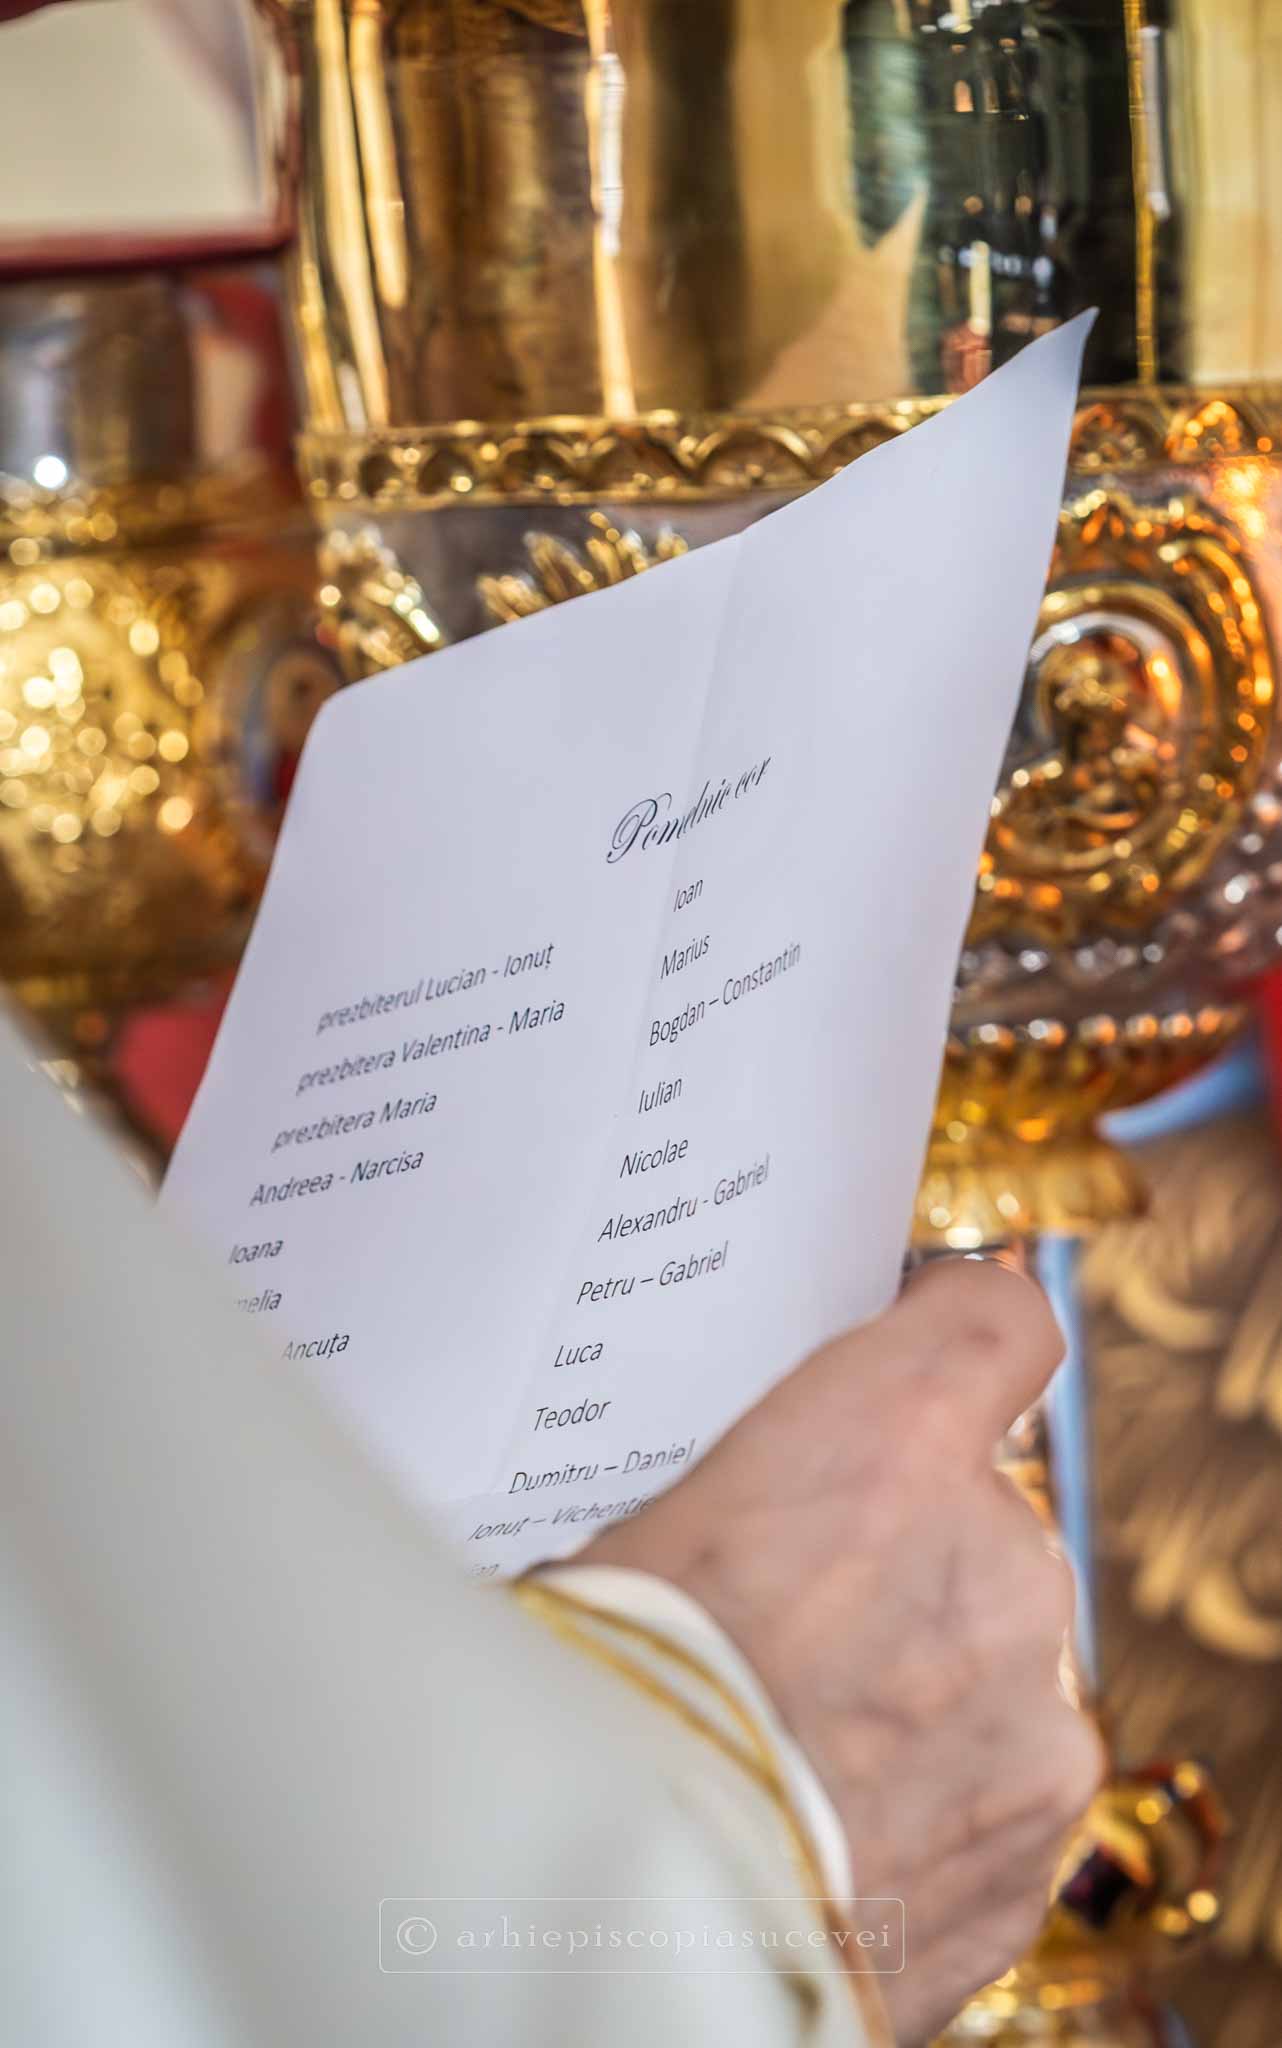 Pomelnic cor
prezbiterul Lucian - Ionuț
prezbitera Valentina - Maria
prezbitera Maria
Andreea - Narcisa
Ioana
melia
Ancuța
Ioan
Marius
Bogdan – Constantin
Iulian
Nicolae
Alexandru - Gabriel
Petru – Gabriel
Luca
Teodor
Dumitru – Daniel
Ionuț – Vichentie
© arhiepiscopiasucevei